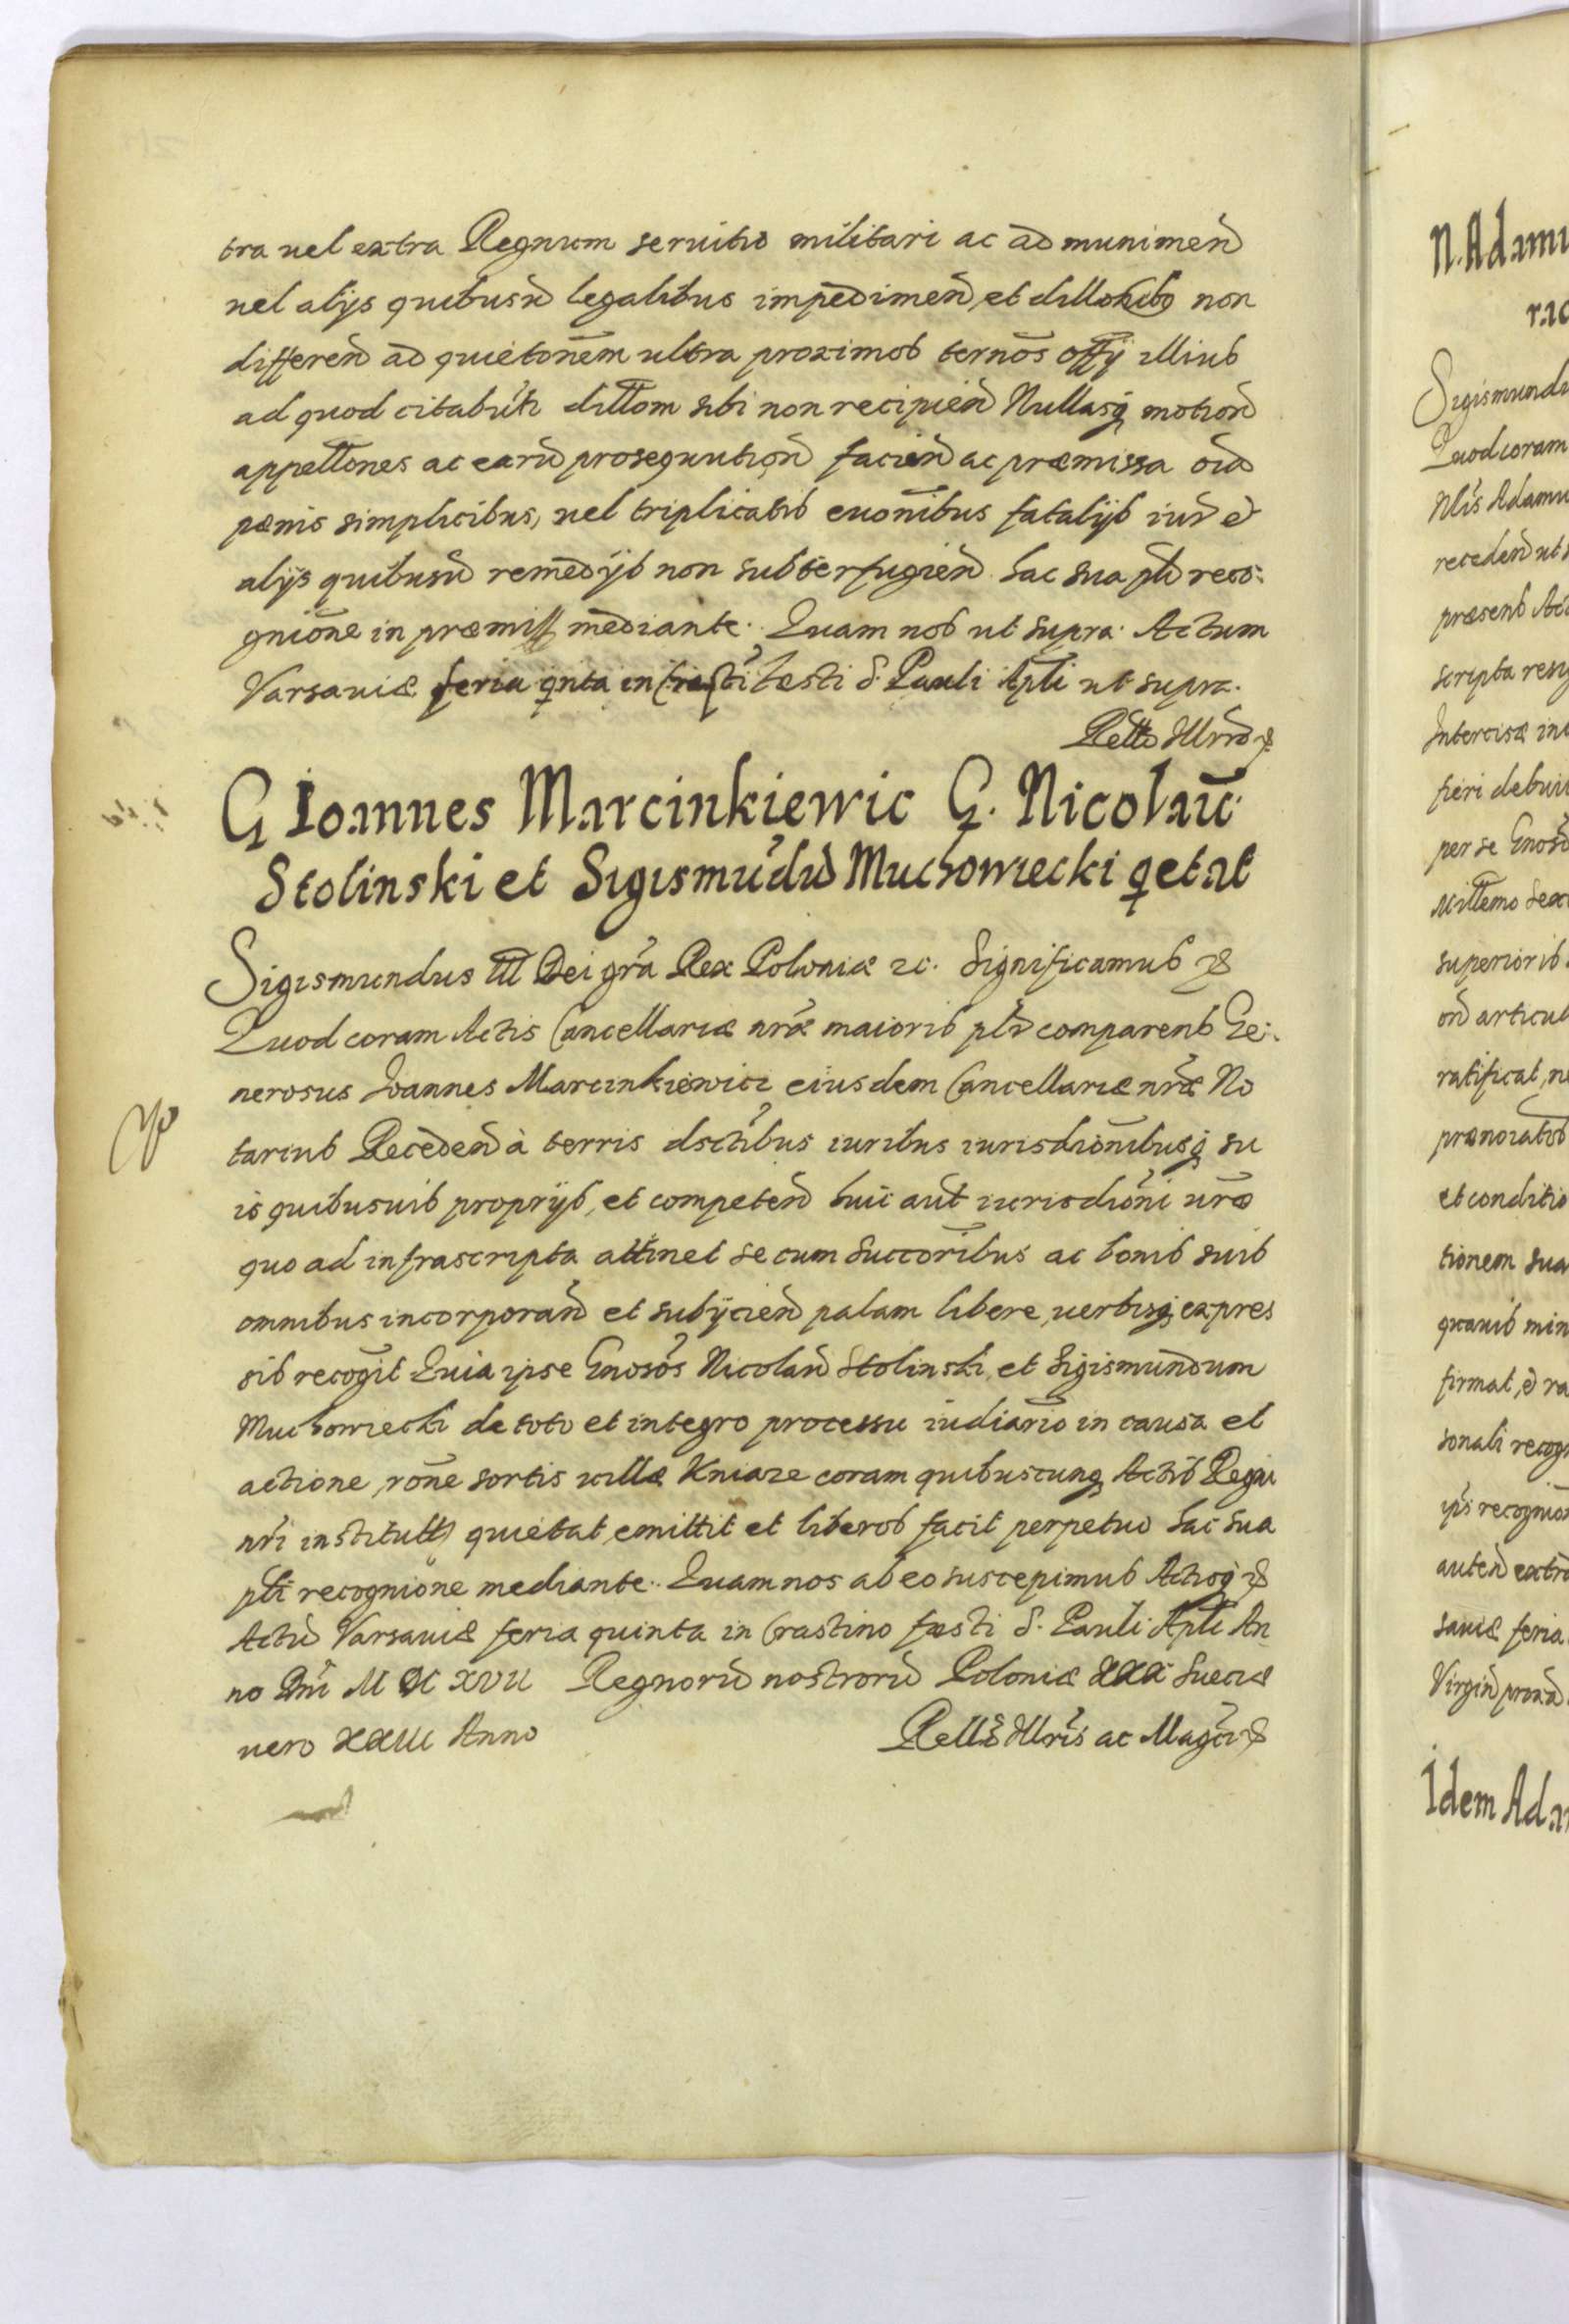 tra uel extra Regnum seruitio militari ac ad munimen̄
uel alijs quibusū legalibus impedimen̄ et dillonibō non
differen̄ ad quietonēm ultra proximos ternōs offỹ illius
ad quod citabūti dillōm sibi non recipien̄ Nullasq̨ motion̄
appellōnes ac earū prosequution̄ facien̄ ac præmissa oīa
pænis simplicibus, uel triplicatis euonībus fatalijs iur̄ et
alijs quibusū remedijs non subterfugien̄ hac sua pn̄ti reco:
gnione in præmiss mediante. Quam nos ut supra. Actum
Varsauiæ feria qinta in Crastī festi S. Pauli Apli ut supra.
Rello Illrm̄ &
G Ioannes Marcinkiewic G. Nicolau̅
Stolinski et Sigismu̅du̅ Muchowiecki qetat
Sigismundus III Dei gr̄a Rex Poloniæ 2c. Significamus &
Quod coram Actis Cancellariæ nr̄æ maioris pn̄tr comparens Ge:
nerosus Joannes Marcinkiewicz eiusdem Cancellariæ nr̄æ No
tarius Receden̄ à terris dsctībus iuribus iurisdionībusq̨ su
is quibusuis proprijs, et competen̄ huic aut̄ iurisdiōni nr̄æ
quo ad infrascripta attinet se cum Succorībus ac bonis suis
omnibus incorporan̄ et subijcien̄ palam libere, uerbisq̨ expres
sis recogīt Quia ipse Gnosōs Nicolau̅ Stolinski, et Sigismundum
Muchowiecki de toto et integro processu iudiario in causa et
actione, rōne sortis uillæ Kniaze coram quibuscunq̨ Actis Regni
nr̄i institutt quietat, emittit et liberos facit perpetuo hac sua
pn̄ti recognione mediante. Quam nos ab eo suscepimus Actisq̨ &
Actū Varsauiæ feria quinta in Crastino festi S. Pauli Apli An
no Dn̄i M DC XVII Regnorū nostrorū Poloniæ XXX Sueciæ
uero XXIII Anno Rello Illris ac Magci &
N. Adamu
Sigismundu
Quod coram
Nlis Adamu
receden̄ ut
præsens Act
scripta
Intercisæ in
fieri debui
per se Gnosō
Milleмo Sex
superioris
on̄ articul
ratificat, n
prænotatos
et conditio
tionem sua
quauis min
firmat, et ra
sonali recogn
ip̄i recognio
auten̄ extra
sauiæ feria
Virgin̄ proxa
Idem Ada